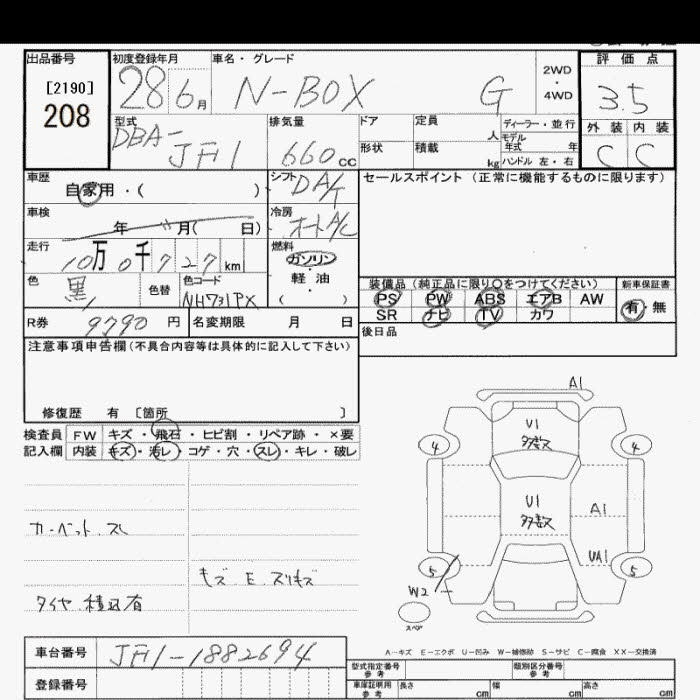 出品番号 初度登録年月 車名・グレード 評価点
[2190] 28 6月 N-BOX G 2WD・4WD 3.5
208
型式 排気量 ドア 定員 人 ディーラー・並行 外装 内装
DBA-JF1 660cc 形状 積載 kg モデル年式 年 C C
ハンドル 左・右
車歴 シフト セールスポイント (正常に機能するものに限ります)
自家用・( ) DA/T
車検 冷房
年 月( 日) オートA/C
走行 燃料
10万0千727km ガソリン
色 色替 色コード ・軽油 装備品(純正品に限り○をつけてください) 新車保証書
黒 NH731PX ( ) PS PW ABS エアB AW 有・無
SR ナビ TV カワ
R券 9790円 名変期限 月 日 後日品
注意事項申告欄(不具合内容等は具体的に記入して下さい)
修復歴 有 〔箇所 〕
検査員 FW キズ・飛石・ヒビ割・リペア跡・×要
記入欄 内装 キズ・汚レ・コゲ・穴・スレ・キレ・破レ
カーペット、スレ
キズ E スリキズ
タイヤ 積込有
A1
U1
多数
4 4
U1
多数
A1
UA1
5 5
W2
スペア
A-キズ E-エクボ U-凹み W-補修跡 S-サビ C-腐食 XX-交換済
車台番号 JF1-1882694 型式指定番号 参考 類別区分番号 参考
登録番号 車庫証明用 参考 長さ cm 幅 cm 高さ cm